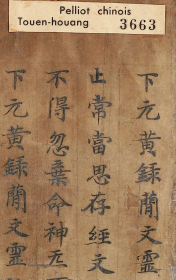 Pelliot chinois
Touen-houang 3663
下元黃籙蘭文靈
止常當思存經文
不得忽棄命神五
下元黃籙蘭文靈